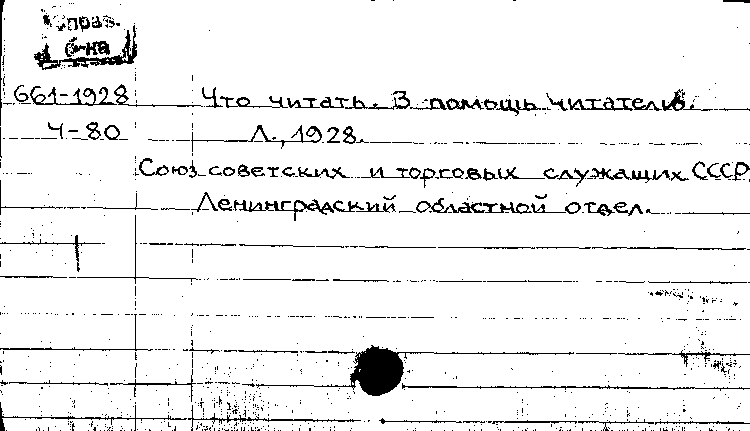 Справ.
б-на
661-1928 Что читать. В помощь читателю.
Ч-80 Л., 1928.
Союз советских и торговых служащих СССР.
Ленинградский областной отдел.